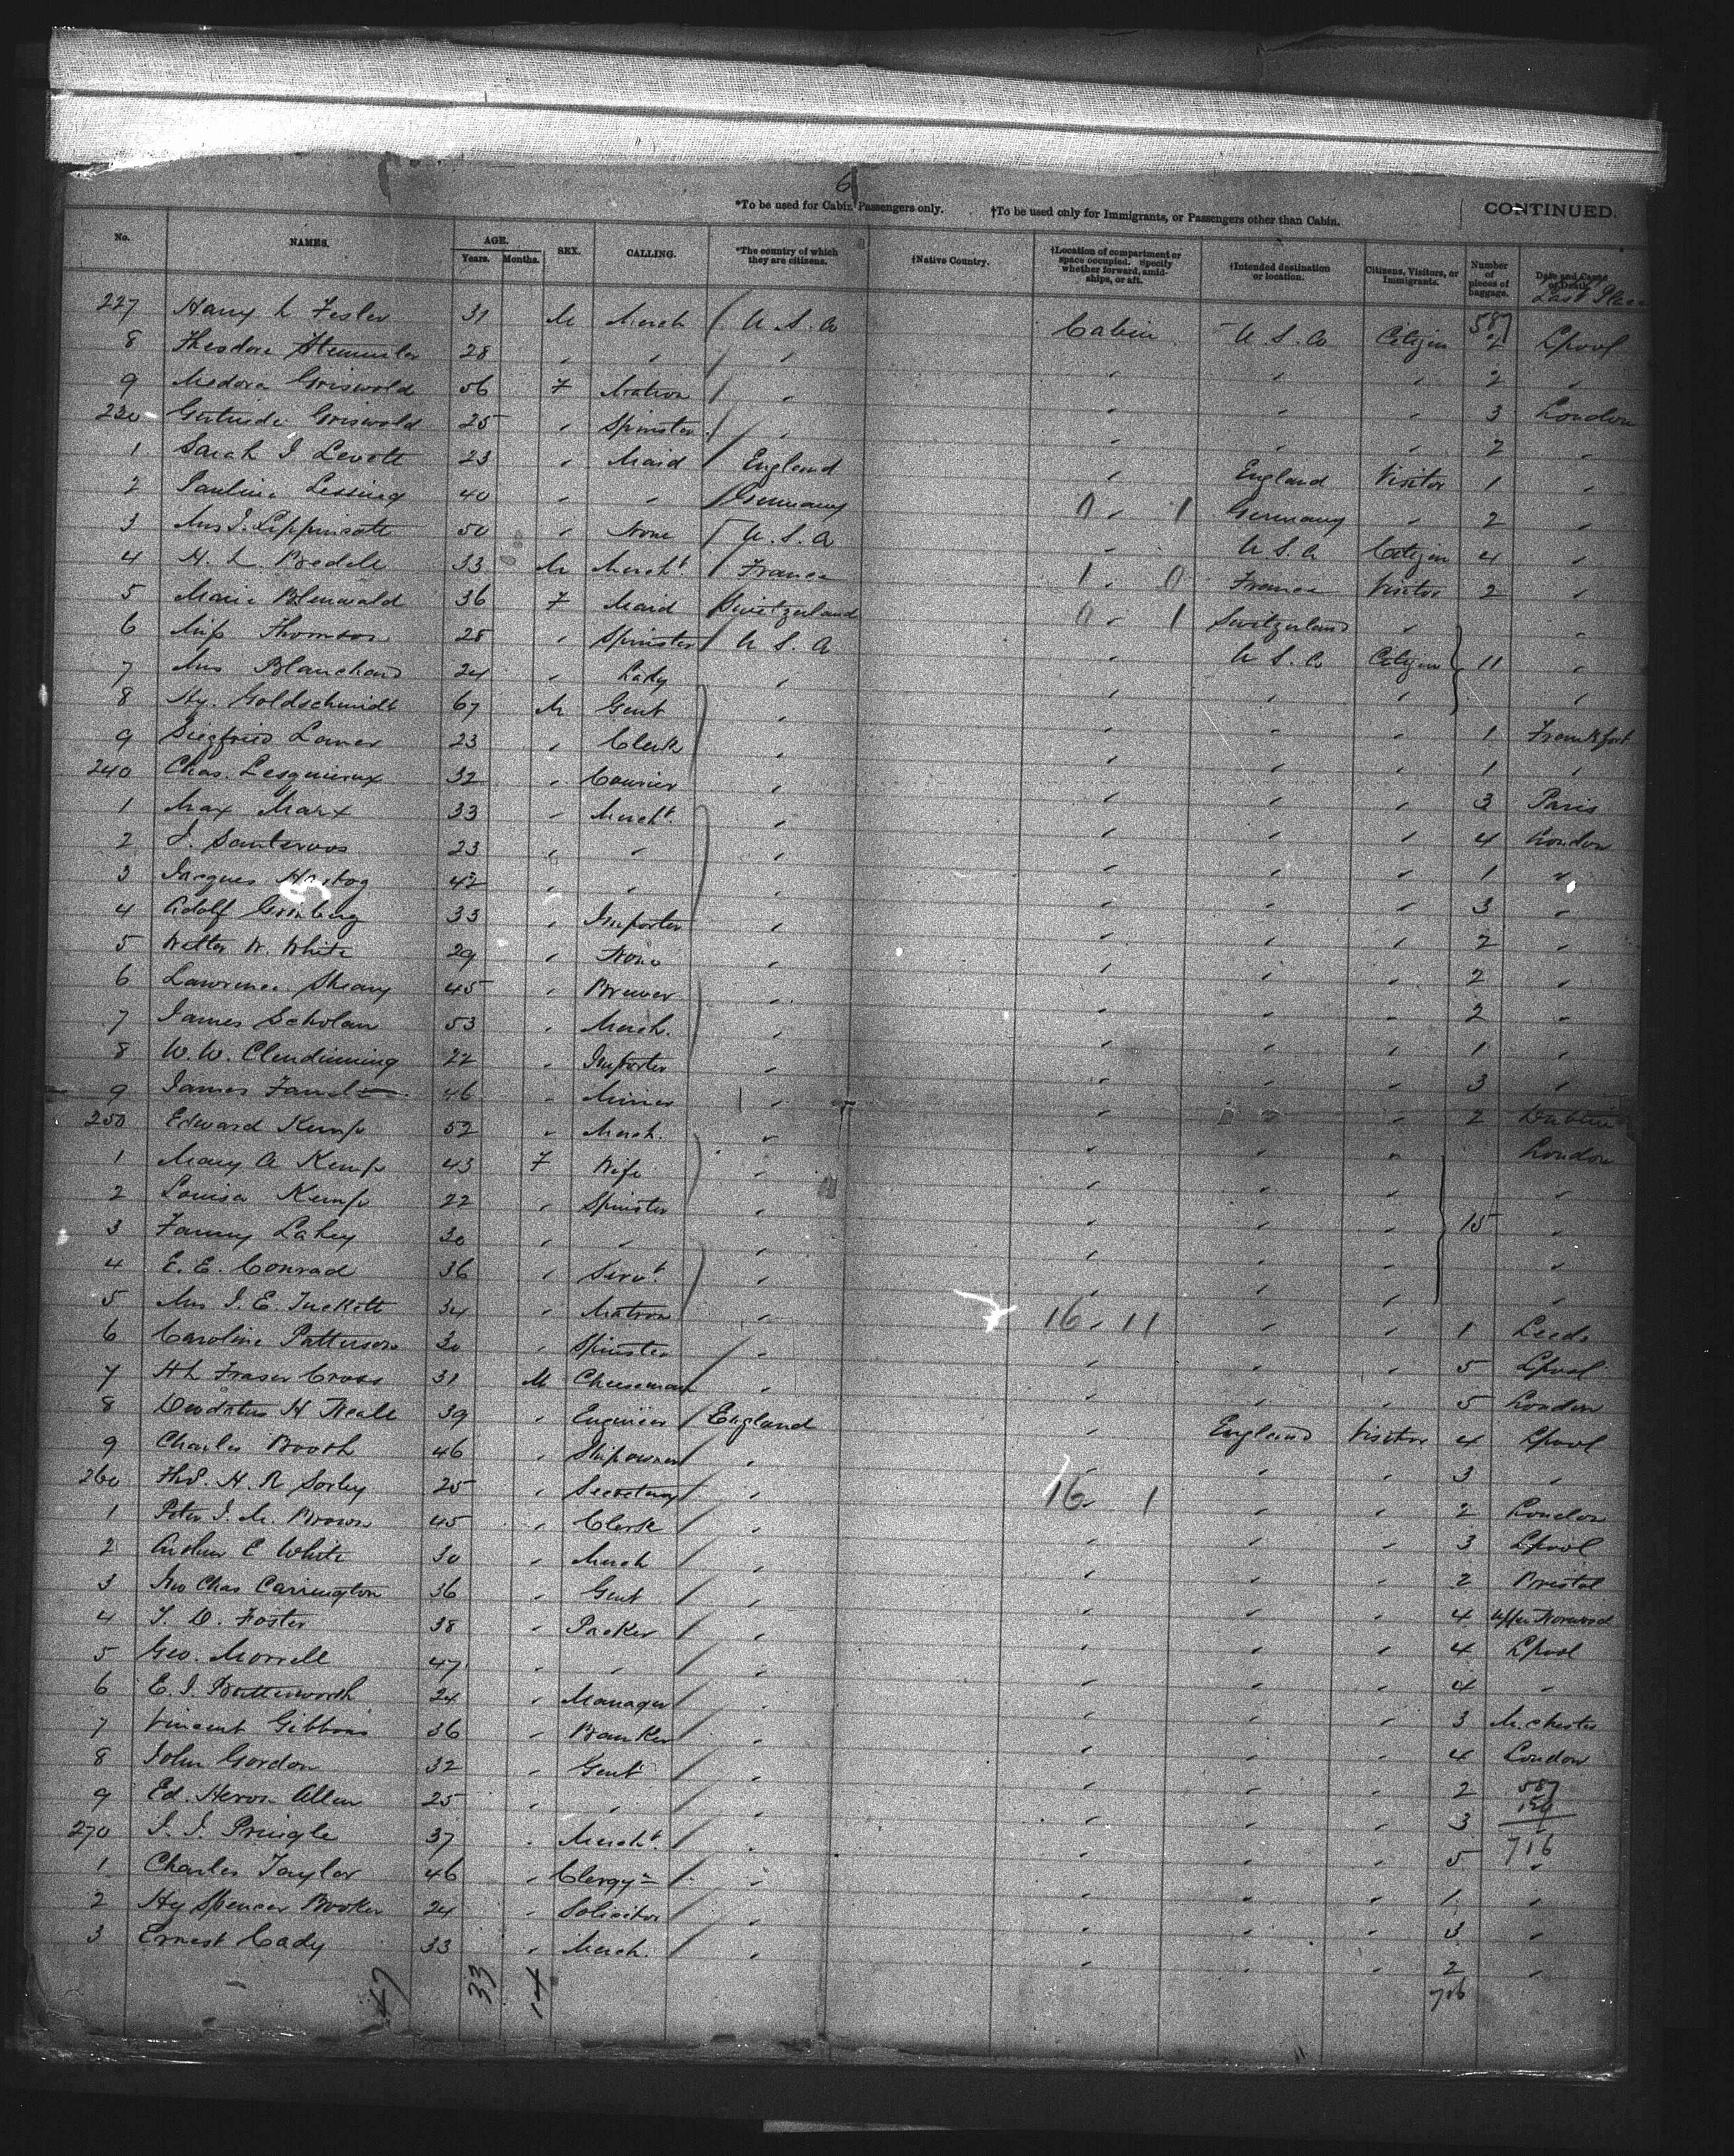 6
*To be used for Cabin Passengers only. †To be used only for Immigrants, or Passengers other than Cabin. CONTINUED.
No. NAMES. AGE. Years. Months. SEX. CALLING. *The country of which they are citizens. †Native Country. †Location of compartment or space occupied. Specify whether forward, amidships, or aft. †Intended destination or location. Citizens, Visitors, or Immigrants. Number of pieces of baggage. Date and Cause of Death. Last Place
587
227 Harry L Fesler 31 M Merch U.S.A Cabin U.S.A Citizen 2 Lpool
8 Theodore 28 " " " " " " 2 "
9 Medora Griswold 56 F Matron " " " " 3 London
230 Gertrude Griswold 25 " Spinster " " " " 2 "
1 Sarah J Levott 23 " Maid England " England Visitor 1 "
2 Pauline Lessing 40 " " Germany 0 " 1 Germany " 2 "
3 Mrs J. Lippincott 50 " None U.S.A " U.S.A Citizen 4 "
4 H. L. Bedell 33 M Mercht France 1 " 0 France Visitor 2 "
5 Marie Blenwald 36 F Maid Switzerland 0 " 1 Switzerland " "
6 Miss Thomson 28 " Spinster U.S.A " U.S.A Citizen 11 "
7 Mrs Blanchard 24 " Lady " " " " "
8 Hy. Goldschmidt 67 M Gent " " " " 1 Frankfort
9 Siegfried Lamer 23 " Clerk " " " " 1 "
240 Chas. Lesquieraux 32 " Courier " " " " 3 Paris
1 Max Marx 33 " Mercht. " " " " 4 London
2 J. Santeroos 23 " " " " " " 1 "
3 Jacques Hartog 42 " " " " " " 3 "
4 Adolf Grinberg 33 " Importer " " " " 2 "
5 Walter W. White 29 " None " " " " 2 "
6 Lawrence Sheary 45 " Brewer " " " " 2 "
7 James Scholan 53 " Merch. " " " " 1 "
8 W. W. Clendinning 22 " Importer " " " " 3 "
9 James 46 " Miner " " " 2 Dublin
250 Edward Kemp 52 " Merch. " " " " London
1 Mary A Kemp 43 F Wife " " " " "
2 Louisa Kemp 22 " Spinster " " " " 15 "
3 Fanny Lahey 30 " " " " " " "
4 E. E. Conrad 36 " Servt. " " " " "
5 Mrs J. E. Tuckett 34 " Matron " 16 " 11 " " 1 Leeds
6 Caroline Patterson 30 " Spinster " " " " 5 Lpool
7 H L Fraser Cross 31 M Cheeseman " " " " 5 London
8 Deodatus H Neale 39 " Engineer England " England Visitor 4 Lpool
9 Charles Booth 46 " Shipowner " " " " 3 "
260 Thos. H. R Sorley 25 " Secretary " 16 " 1 " " 2 London
1 Peter J. M. Brown 45 " Clerk " " " " 3 Lpool
2 Arthur C White 30 " Merch " " " " 2 Bristol
3 Jno Chas Carrington 36 " Gent " " " " 4 Upper Norwood
4 T. D. Foster 38 " Packer " " " " 4 Lpool
5 Geo. Morrell 47 " " " " " " 4 "
6 E. J. Butterworth 24 " Manager " " " " 3 M.chester
7 Vincent Gibbons 36 " Banker " " " " 4 London
8 John Gordon 32 " Gent " " " " 2 587
9 Ed. Heron Allen 25 " " " " " " 3
270 J. J. Pringle 37 " Mercht " " " " 5 716 "
1 Charles Taylor 46 " Clergyn " " " " 1 "
2 Hy Spencer Booker 24 " Solicitor " " " " 3 "
3 Ernest Cady 33 " Merch. " " " " 2 "
47 33 14 716